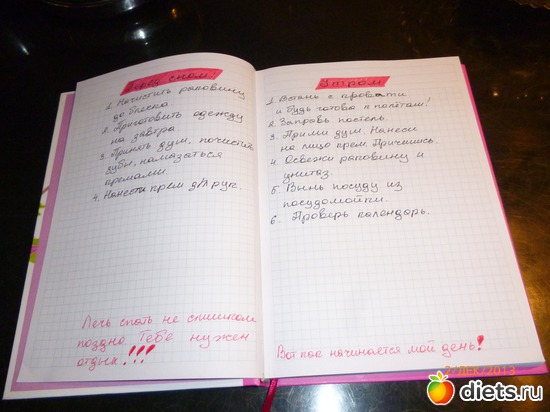 Перед сном!
1. Начистить раковину
до блеска
2. Приготовить одежду
на завтра.
3. Принять душ, почистить
зубы, намазаться
кремами.
4. Нанести крем д/рук.
Лечь спать не слишком
поздно. Тебе нужен
отдых!!!
Утром
1. Встань с кровати
и будь готова к полётам!
2. Заправь постель
3. Прими душ. Нанеси
на лицо крем. Причешись.
4. Освежи раковину и
унитаз.
5. Вынь посуду из
посудомойки.
6. Проверь календарь.
Вот так начинается мой день!
2 ДЕК/2013
diets.ru